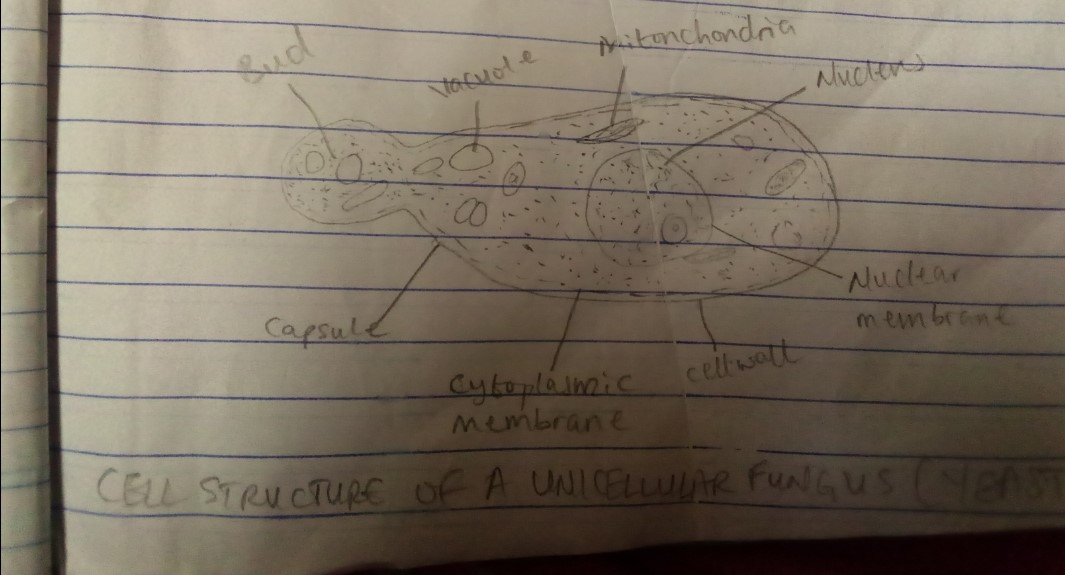 Bud
Vacuole
Mitonchondria
Nucleus
Capsule
Nuclear
membrane
cell wall
Cytoplasmic
membrane
CELL STRUCTURE OF A UNICELLULAR FUNGUS (YEAST